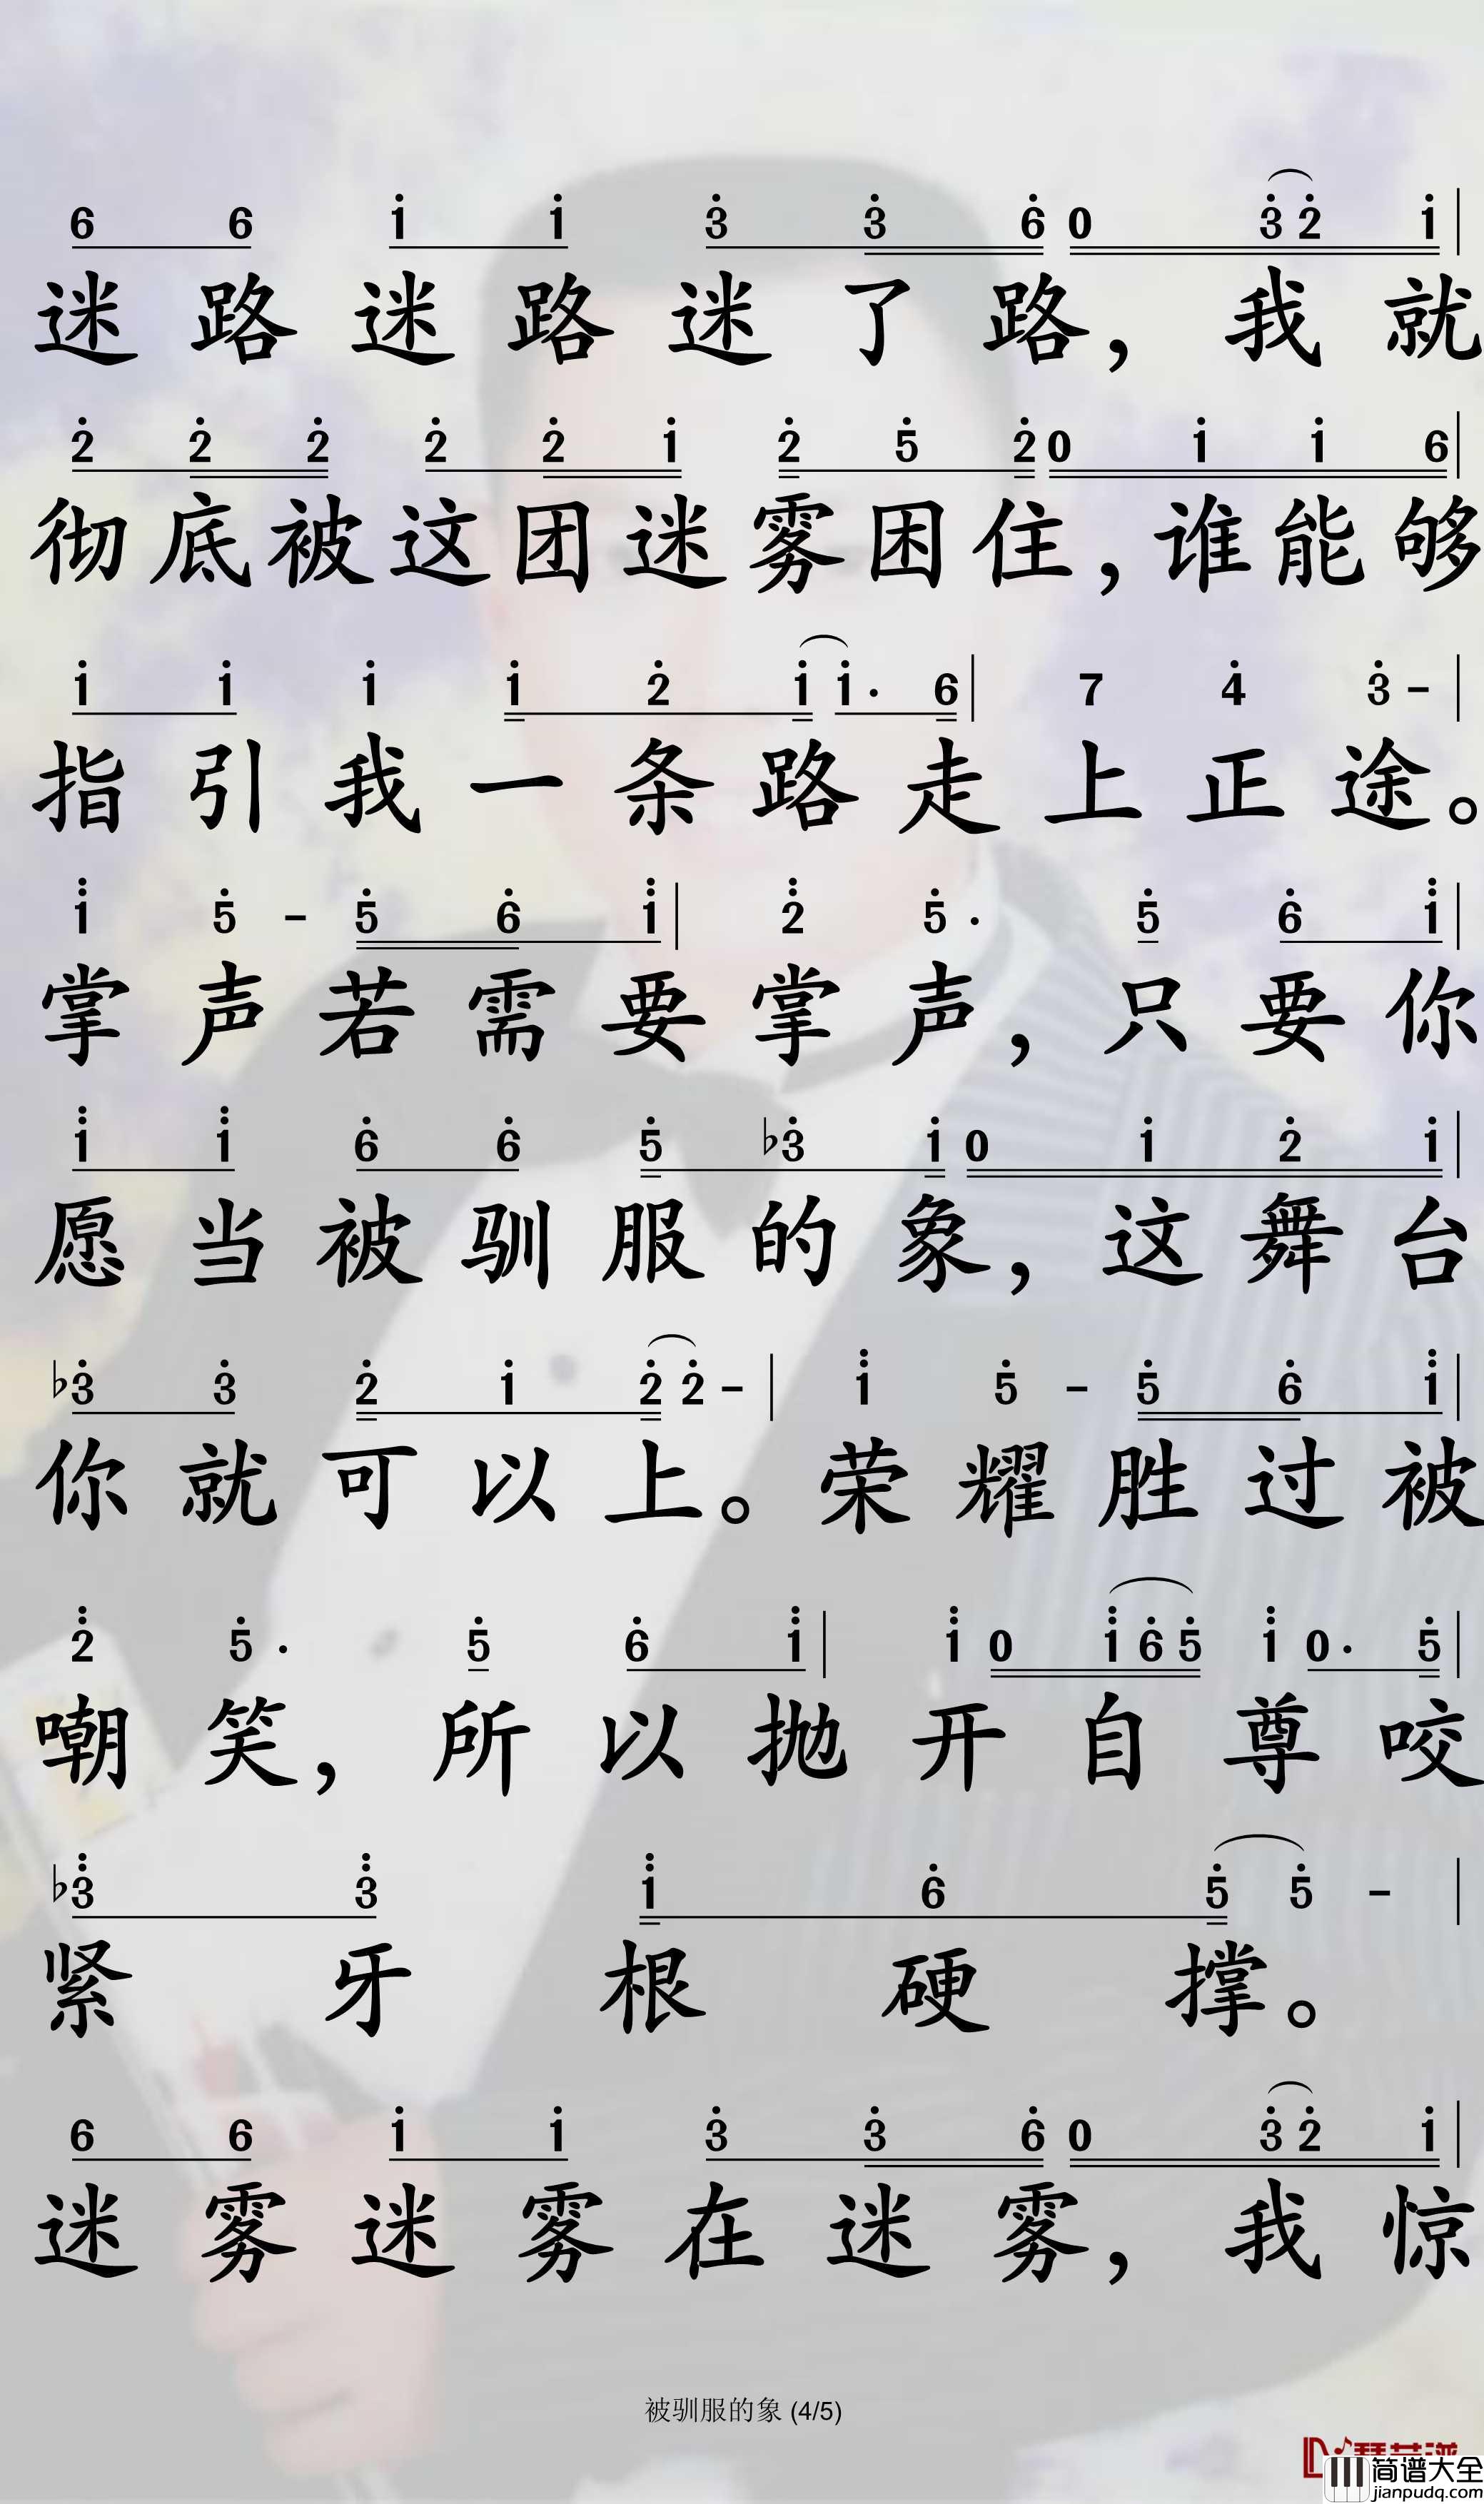 6 6 i i 3̇ 3̇ 6̇ 0 3̇ 2̇ i |
迷路迷路迷了路，我就
2̇ 2̇ 2̇ 2̇ 2̇ i 2̇ 5̇ 2̇ 0 i i 6 |
彻底被这团迷雾困住，谁能够
i i i i 2̇ i i· 6 | 7 4̇ 3̇ - |
指引我一条路走上正途。
1̈ 5̇ - 5̇ 6̇ 1̈ | 2̈ 5̇· 5̇ 6̇ 1̈ |
掌声若需要掌声，只要你
1̈ 1̈ 6̇ 6̇ 5̇ ♭3̇ i 0 i 2̇ i |
愿当被驯服的象，这舞台
♭3̇ 3̇ 2̇ i 2̇ 2̇ - | 1̈ 5̇ - 5̇ 6̇ 1̈ |
你就可以上。荣耀胜过被
2̈ 5̇· 5̇ 6̇ 1̈ | 1̈ 0 1̈ 6̇ 5̇ 1̈ 0· 5̇ |
嘲笑，所以抛开自尊咬
♭3̈ 3̈ 1̈ 6̇ 5̇ 5̇ - |
紧牙根硬撑。
6 6 i i 3̇ 3̇ 6̇ 0 3̇ 2̇ i |
迷雾迷雾在迷雾，我惊
被驯服的象 (4/5)
简谱大全
jianpudq.com